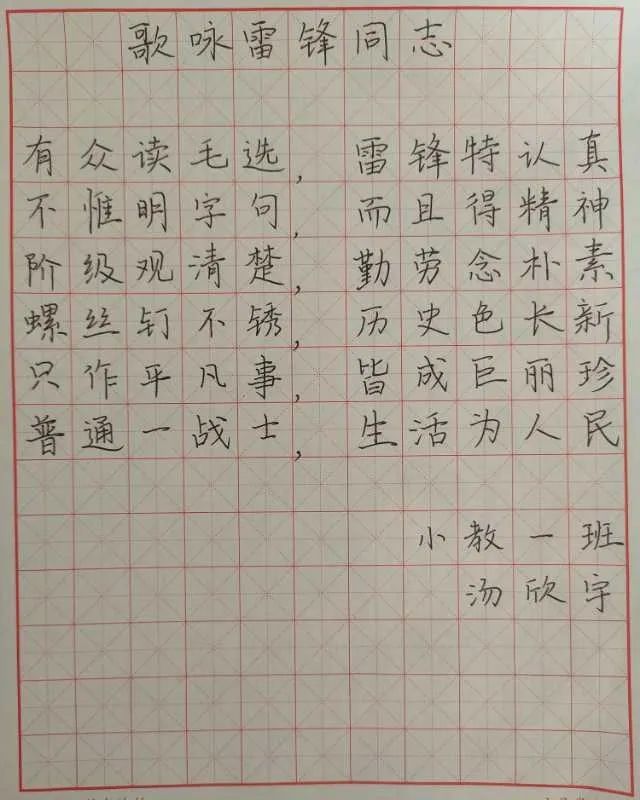 歌咏雷锋同志
有众读毛选，雷锋特认真
不惟明字句，而且得精神
阶级观清楚，勤劳念朴素
螺丝钉不锈，历史色长新
只作平凡事，皆成巨丽珍
普通一战士，生活为人民
小教一班
汤欣宇